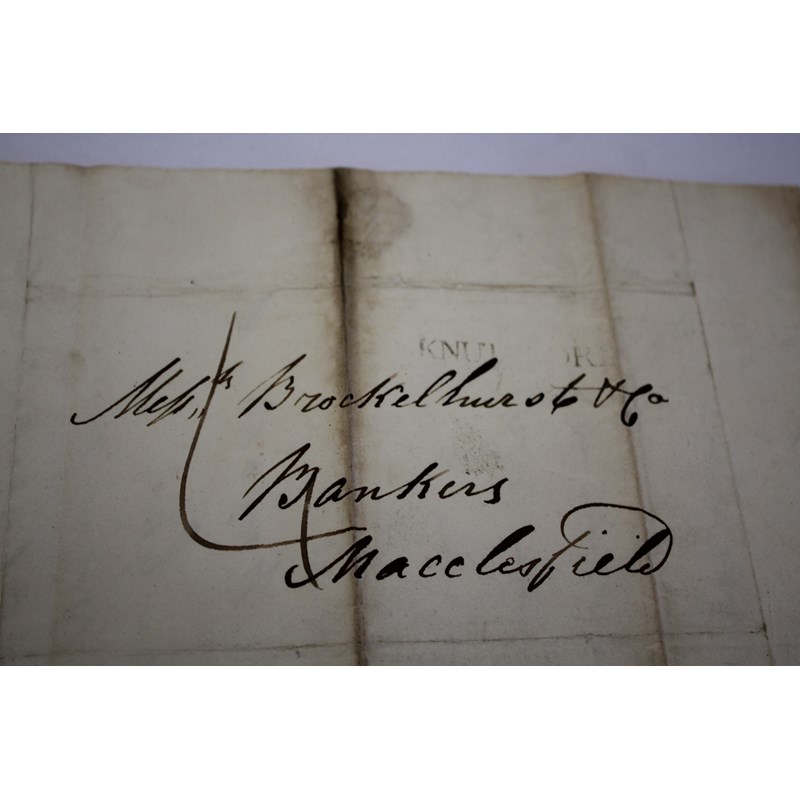 KNUT ORD
Messrs Brockelhurst & Co
Bankers
Macclesfield